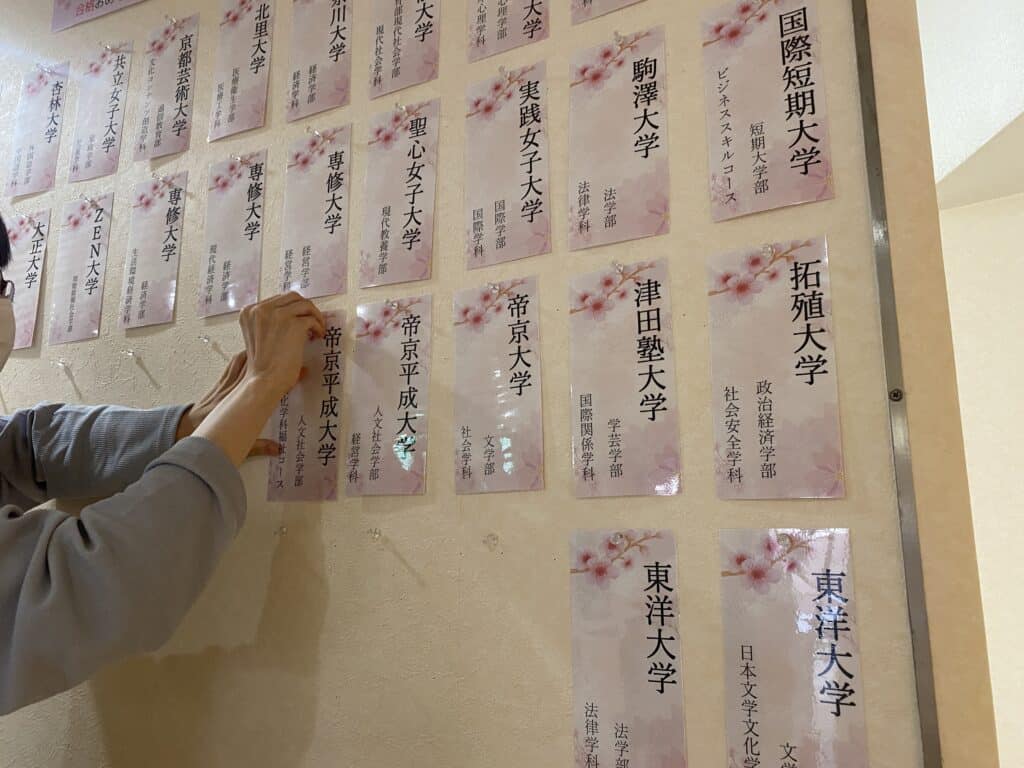 合格お
学科
心理学科
大学
現代社会学部
現代社会学科
川大学
経済学部
経済学科
北里大学
医療衛生学部
京都芸術大学
通信教育部
文化コンテンツ創造学科
共立女子大学
杏林大学
外国語学部
国際短期大学
短期大学部
ビジネススキルコース
駒澤大学
法学部
法律学科
実践女子大学
国際学部
国際学科
聖心女子大学
現代教養学部
専修大学
経営学部
経営学科
専修大学
経済学部
現代経済学科
専修大学
経済学部
生活環境経済学科
ZEN大学
大正大学
拓殖大学
政治経済学部
社会安全学科
津田塾大学
学芸学部
国際関係学科
帝京大学
文学部
社会学科
帝京平成大学
人文社会学部
経営学科
帝京平成大学
人文社会学部
化学科福祉コース
東洋大学
文学
日本文学文化学
東洋大学
法学部
法律学科